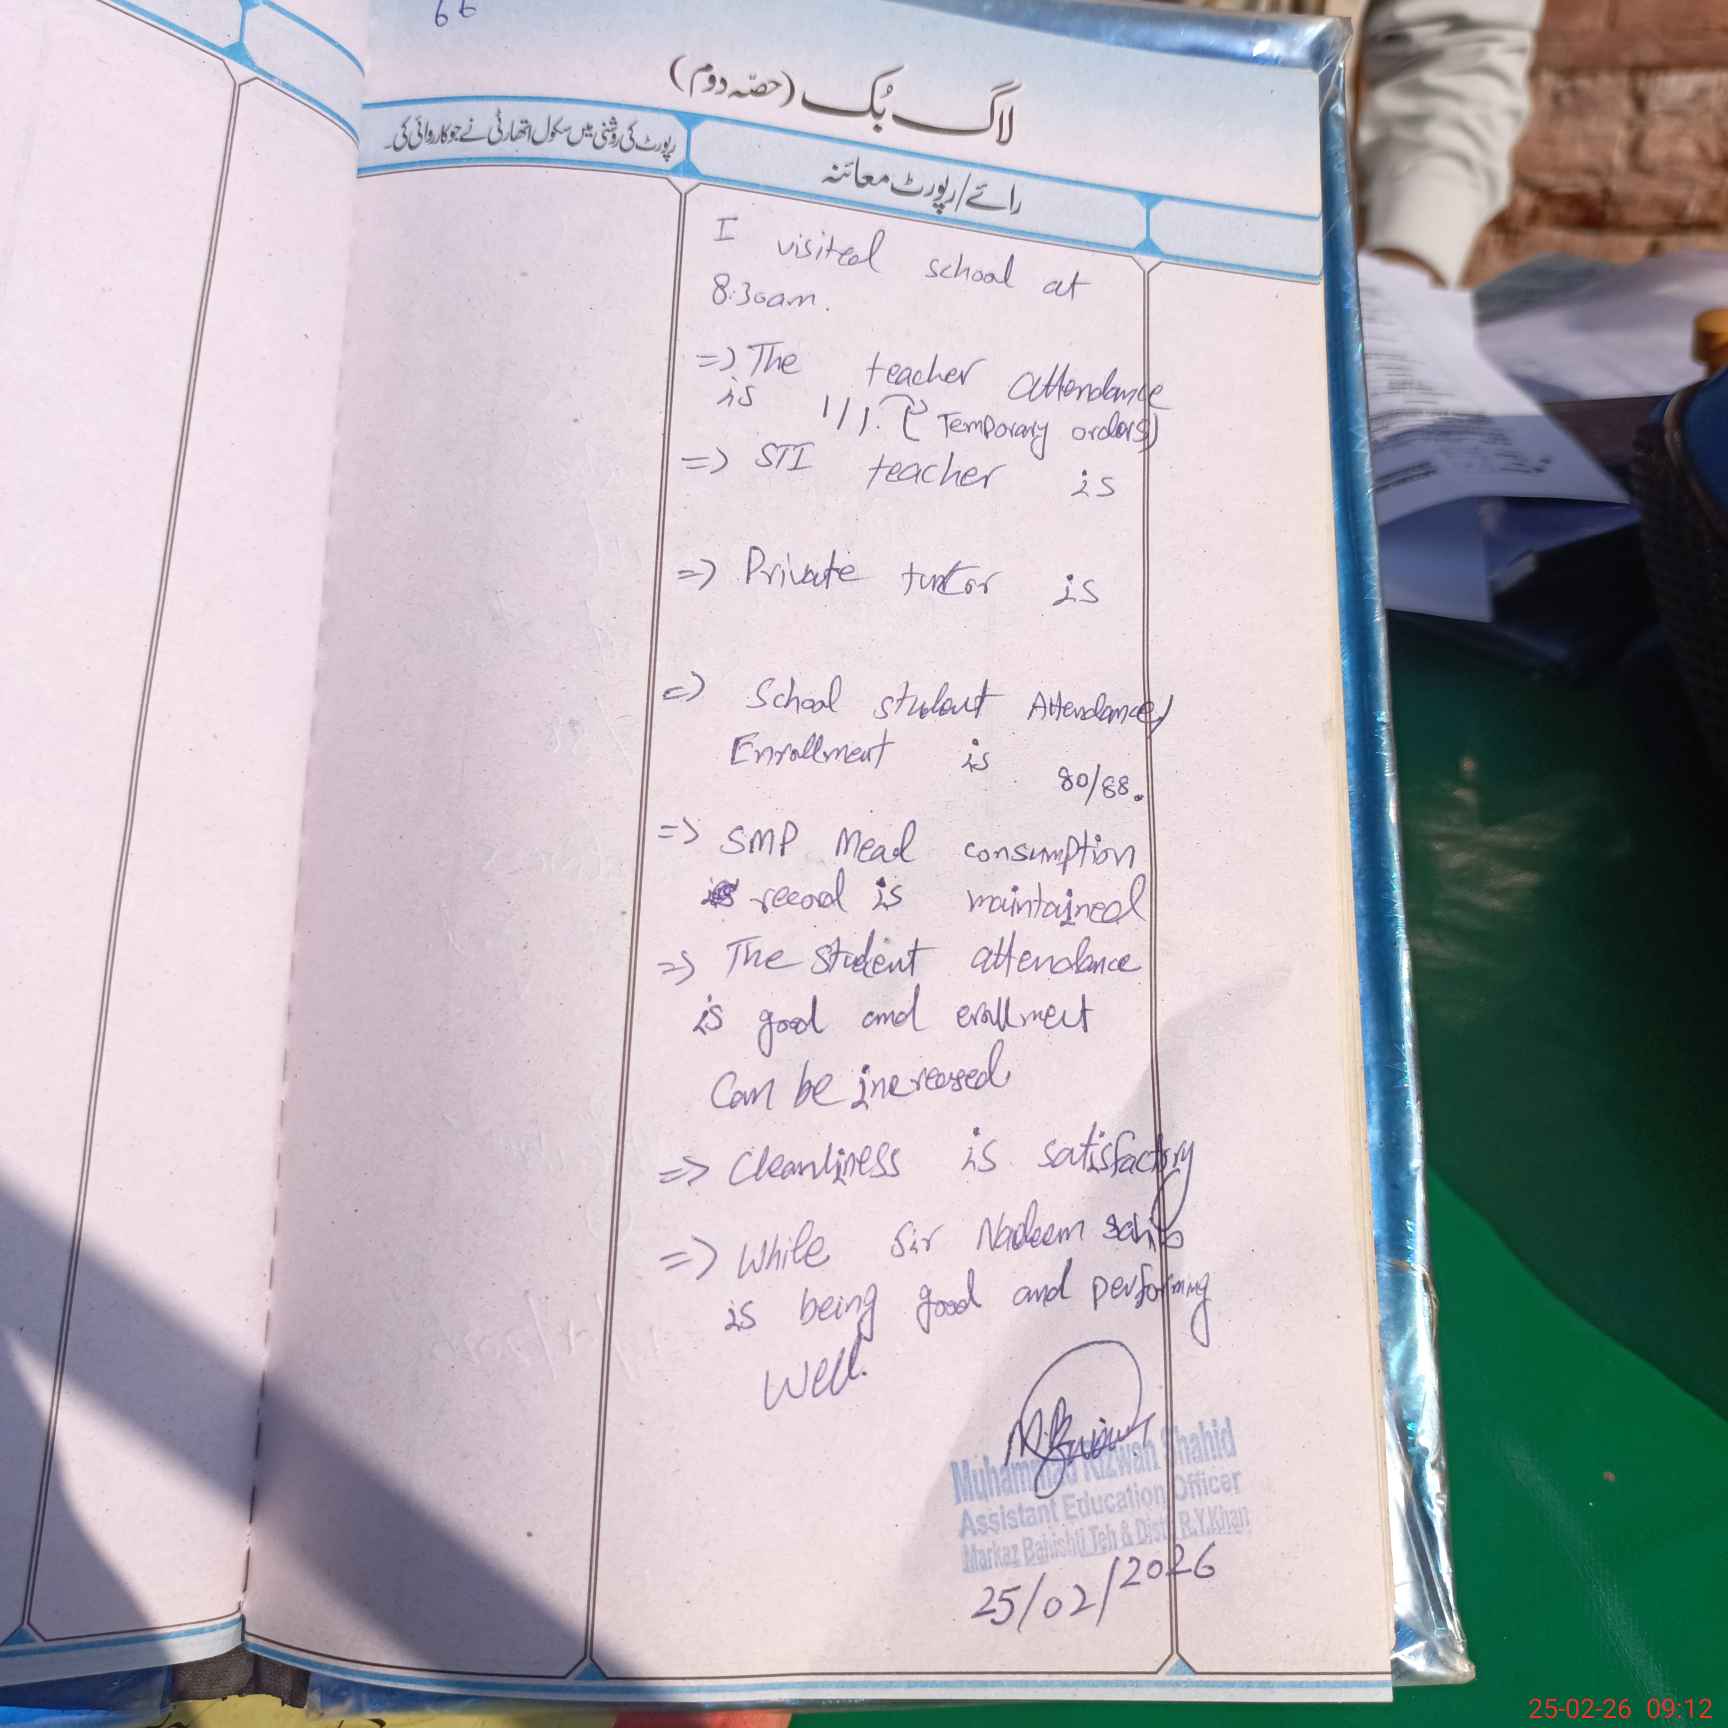 لاگ بُک (حصّہ دوم)
رپورٹ کی روشنی میں سکول اتھارٹی نے جو کاروائی کی۔
رائے/رپورٹ معائنہ
I visited school at
8:30am.
=> The teacher attendance
is 1/1. (Temporary orders)
=> STI teacher is
=> Private tutor is
=> School student Attendance/
Enrollment is 80/88.
=> SMP Meal consumption
record is maintained
=> The student attendance
is good and erollment
Can be increased
=> Cleanliness is satisfactory
=> While Sir Nadeem sahib
is being good and performing
well.
Muhammad Rizwan Shahid
Assistant Education Officer
Markaz Bahishti Teh & Distt R.Y.Khan
25/02/2026
25-02-26 09:12